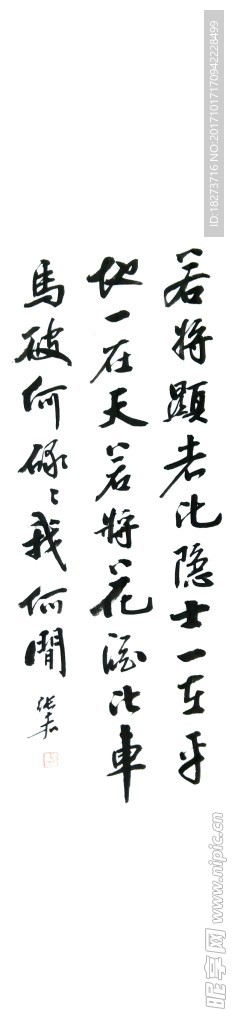 若将顕者比隐士一在平
地一在天若将花酒比車
馬破何碌々我何閒
ID:18273716 NO:20171017170942228499
昵享网 www.nipic.cn